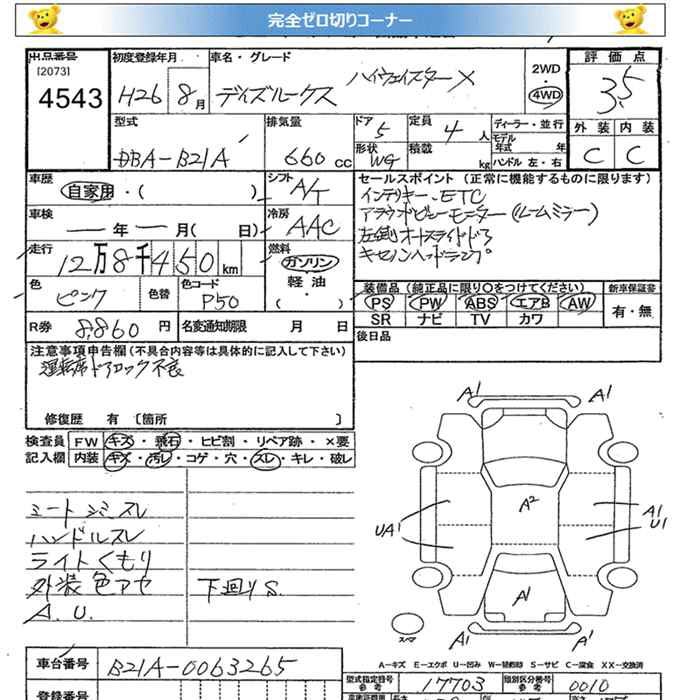 完全ゼロ切りコーナー
出品番号 初度登録年月 車名・グレード 2WD・4WD 評価点
[2073]
4543 H26 8月 デイズルークス ハイウェイスターX 3.5
型式 排気量 ドア 5 定員 4人 ディーラー・並行 外装 内装
DBA-B21A 660cc 形状 WG 積載 kg モデル年式 年 ハンドル 左・右 C C
車歴 シフト A/T セールスポイント (正常に機能するものに限ります)
自家用・( ) インテリキー、ETC
車検 ー年ー月( 日) 冷房 AAC アラウンドビューモニター(ルームミラー)
走行 12万8千450km 燃料 ガソリン 左側オートスライドドア
軽油 キセノンヘッドランプ
色 ピンク 色替 色コード P50 ・( )
装備品 (純正品に限り○をつけてください) 新車保証書
PS PW ABS エアB AW 有・無
SR ナビ TV カワ
R券 8,860円 名変通知期限 月 日 後日品
注意事項申告欄 (不具合内容等は具体的に記入して下さい)
運転席ドアロック不良
修復歴 有 〔箇所 〕
検査員 FW キズ・飛石・ヒビ割・リペア跡・×要
記入欄 内装 キズ・汚レ・コゲ・穴・スレ・キレ・破レ
シートシミスレ
ハンドルスレ
ライトくもり
外装色アセ 下廻りS.
A.U.
A1 A1
UA1 A2 A1 U1
A1
A1 A1
スペア
A-キズ E-エクボ U-凹み W-補修跡 S-サビ C-腐食 XX-交換済
車台番号 B21A-0063265
型式指定番号 参考 17703 類別区分番号 参考 0010
登録番号